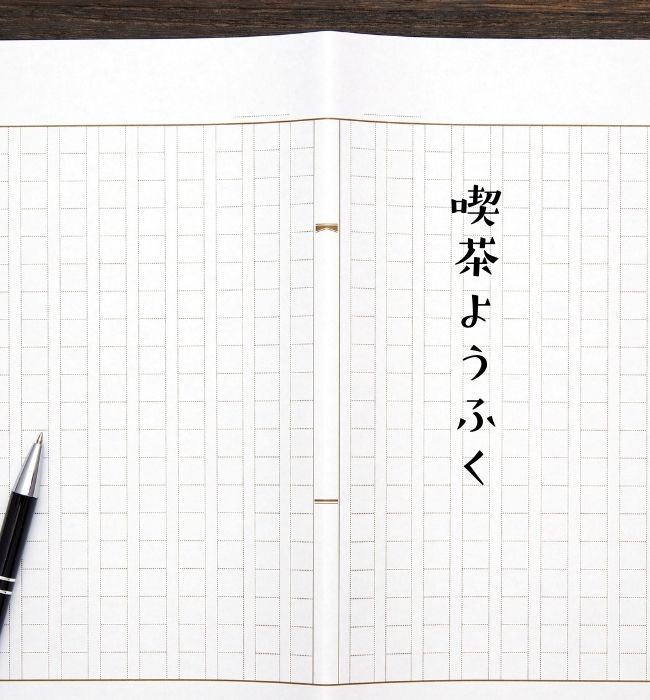 喫茶ようふく